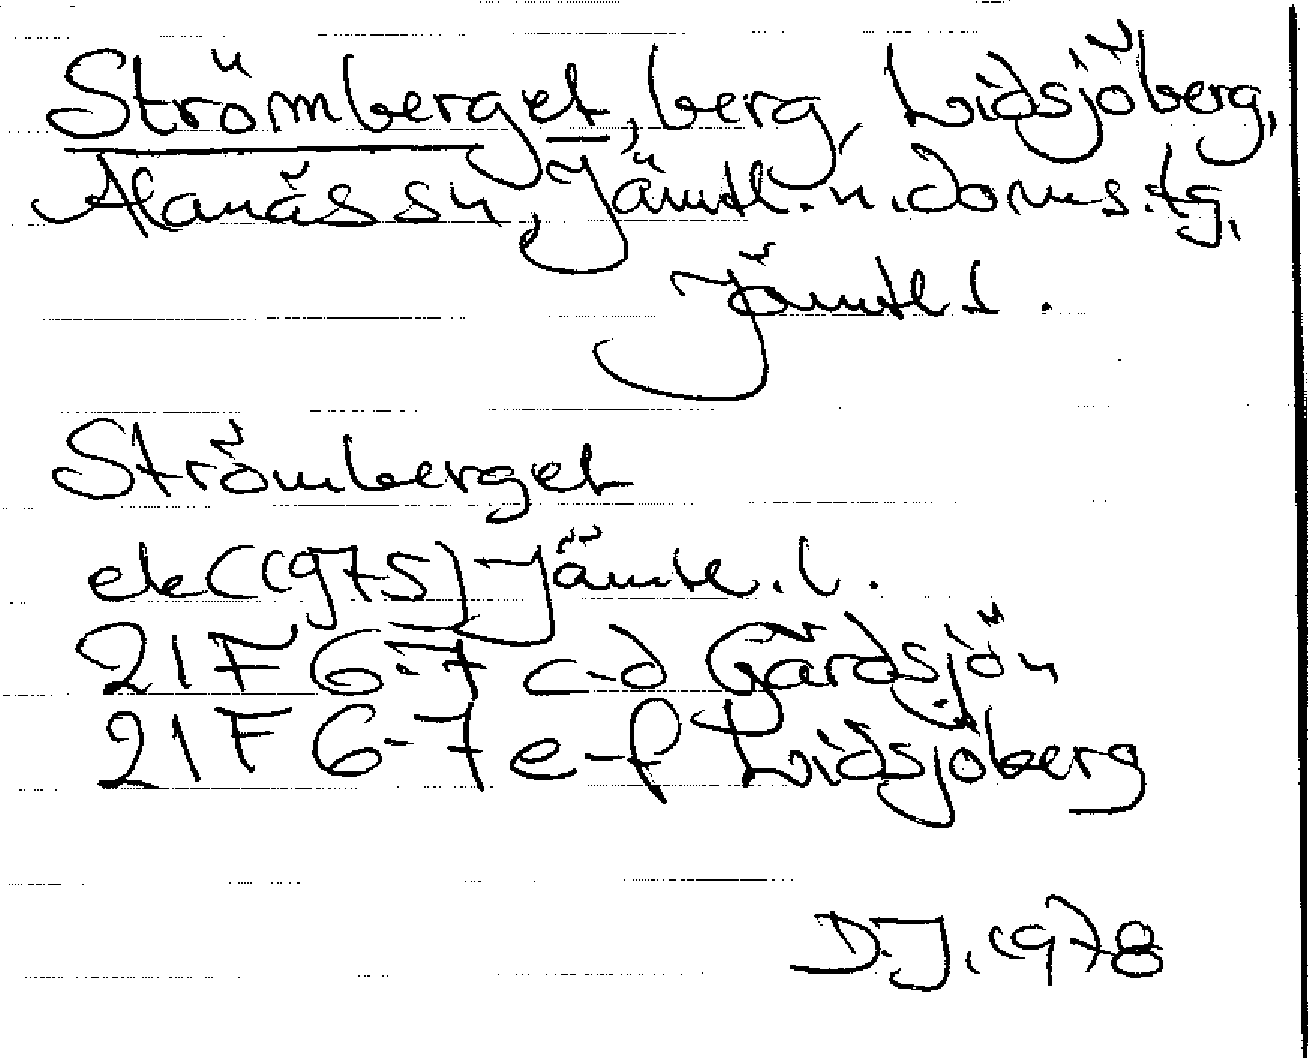 Strömberget, berg, Lidsjöberg,
Alanäs sn, Jämtl. n. doms. tg,
Jämtl. l.
Strömberget
ek (1975) Jämtl. l.
21 F 6-7 c-d Gårdsjön
21 F 6-7 e-f Lidsjöberg
D.J. 1978